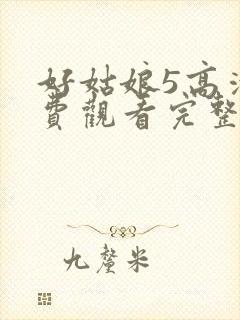 好姑娘5高
費觀看完整
九釐米